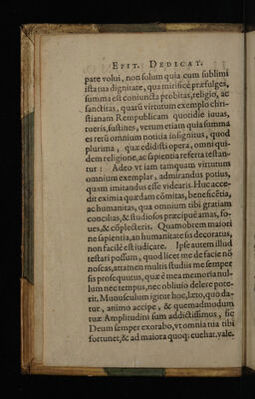 EPIT. DEDICAT.
pare volui, non solum quia cum sublimi
ista tua dignitate, qua mirificè præfulges,
summa est coniuncta probitas, religio, ac
sanctitas, quarũ virtutum exemplo chri-
stianam Rempublicam quotidie iuuas,
tueris, sustines, verum etiam quia summa
es rerũ omnium notitia insignitus, quod
plurima, quæ edidisti opera, omni qui-
dem religione, ac sapientia referta testan-
tur: Adeo vt iam tamquam virtutum
omnium exemplar, admirandus potius,
quàm imitandus esse videaris. Huc acce-
dit eximia quædam comitas, beneficētia,
ac humanitas, qua omnium tibi gratiam
concilias, & studiosos præcipuè amas, fo-
ues, & cōplecteris. Quamobrem maiori
ne sapientia, an humanitate sis decoratus,
non facilè est iudicare. Ipse autem illud
testari possum, quod licet me de facie nō
noscas, attamen multis studiis me semper
sis prosequutus, quæ è mea memoria nul-
lum nec tempus, nec obliuio delere pote-
rit. Munusculum igitur hoc, læto, quo da-
tur, animo accipe, & quemadmodum
tuæ Amplitudini sum addictissimus, sic
Deum semper exorabo, vt omnia tua tibi
fortunet, & ad maiora quoq; euehat. vale.